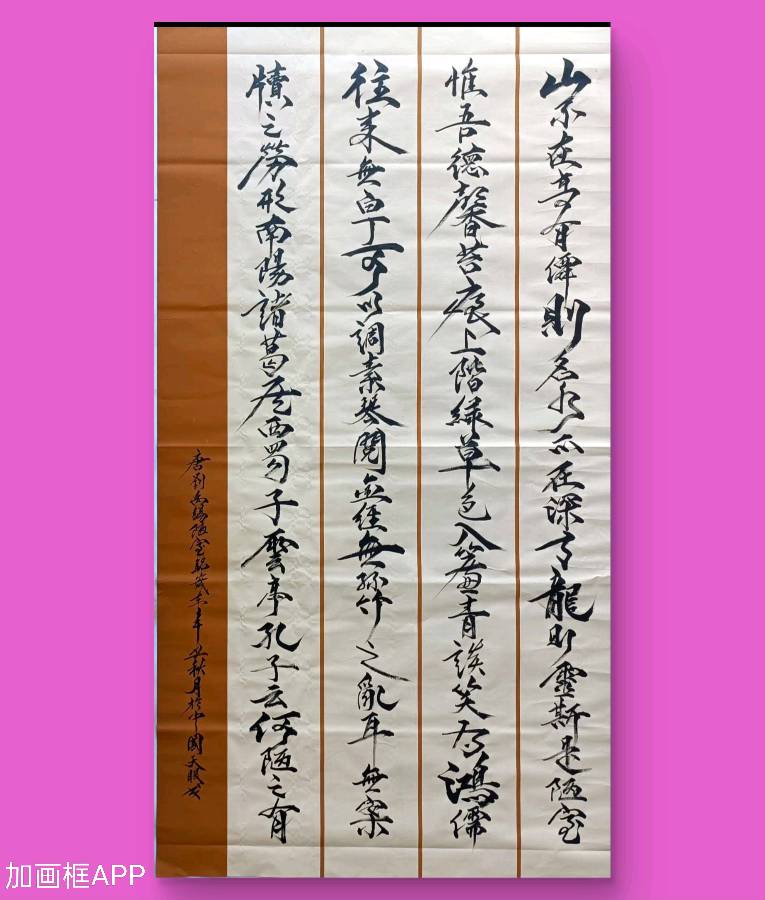 山不在高有僊則名水不在深有龍則靈斯是陋室
惟吾德馨苔痕上階綠草色入簾青談笑有鴻儒
往來無白丁可以調素琴閱金經無絲竹之亂耳無案
牘之勞形南陽諸葛廬西蜀子雲亭孔子云何陋之有
唐刘禹錫陋室銘歲年秋月於中國天眼
加画框APP